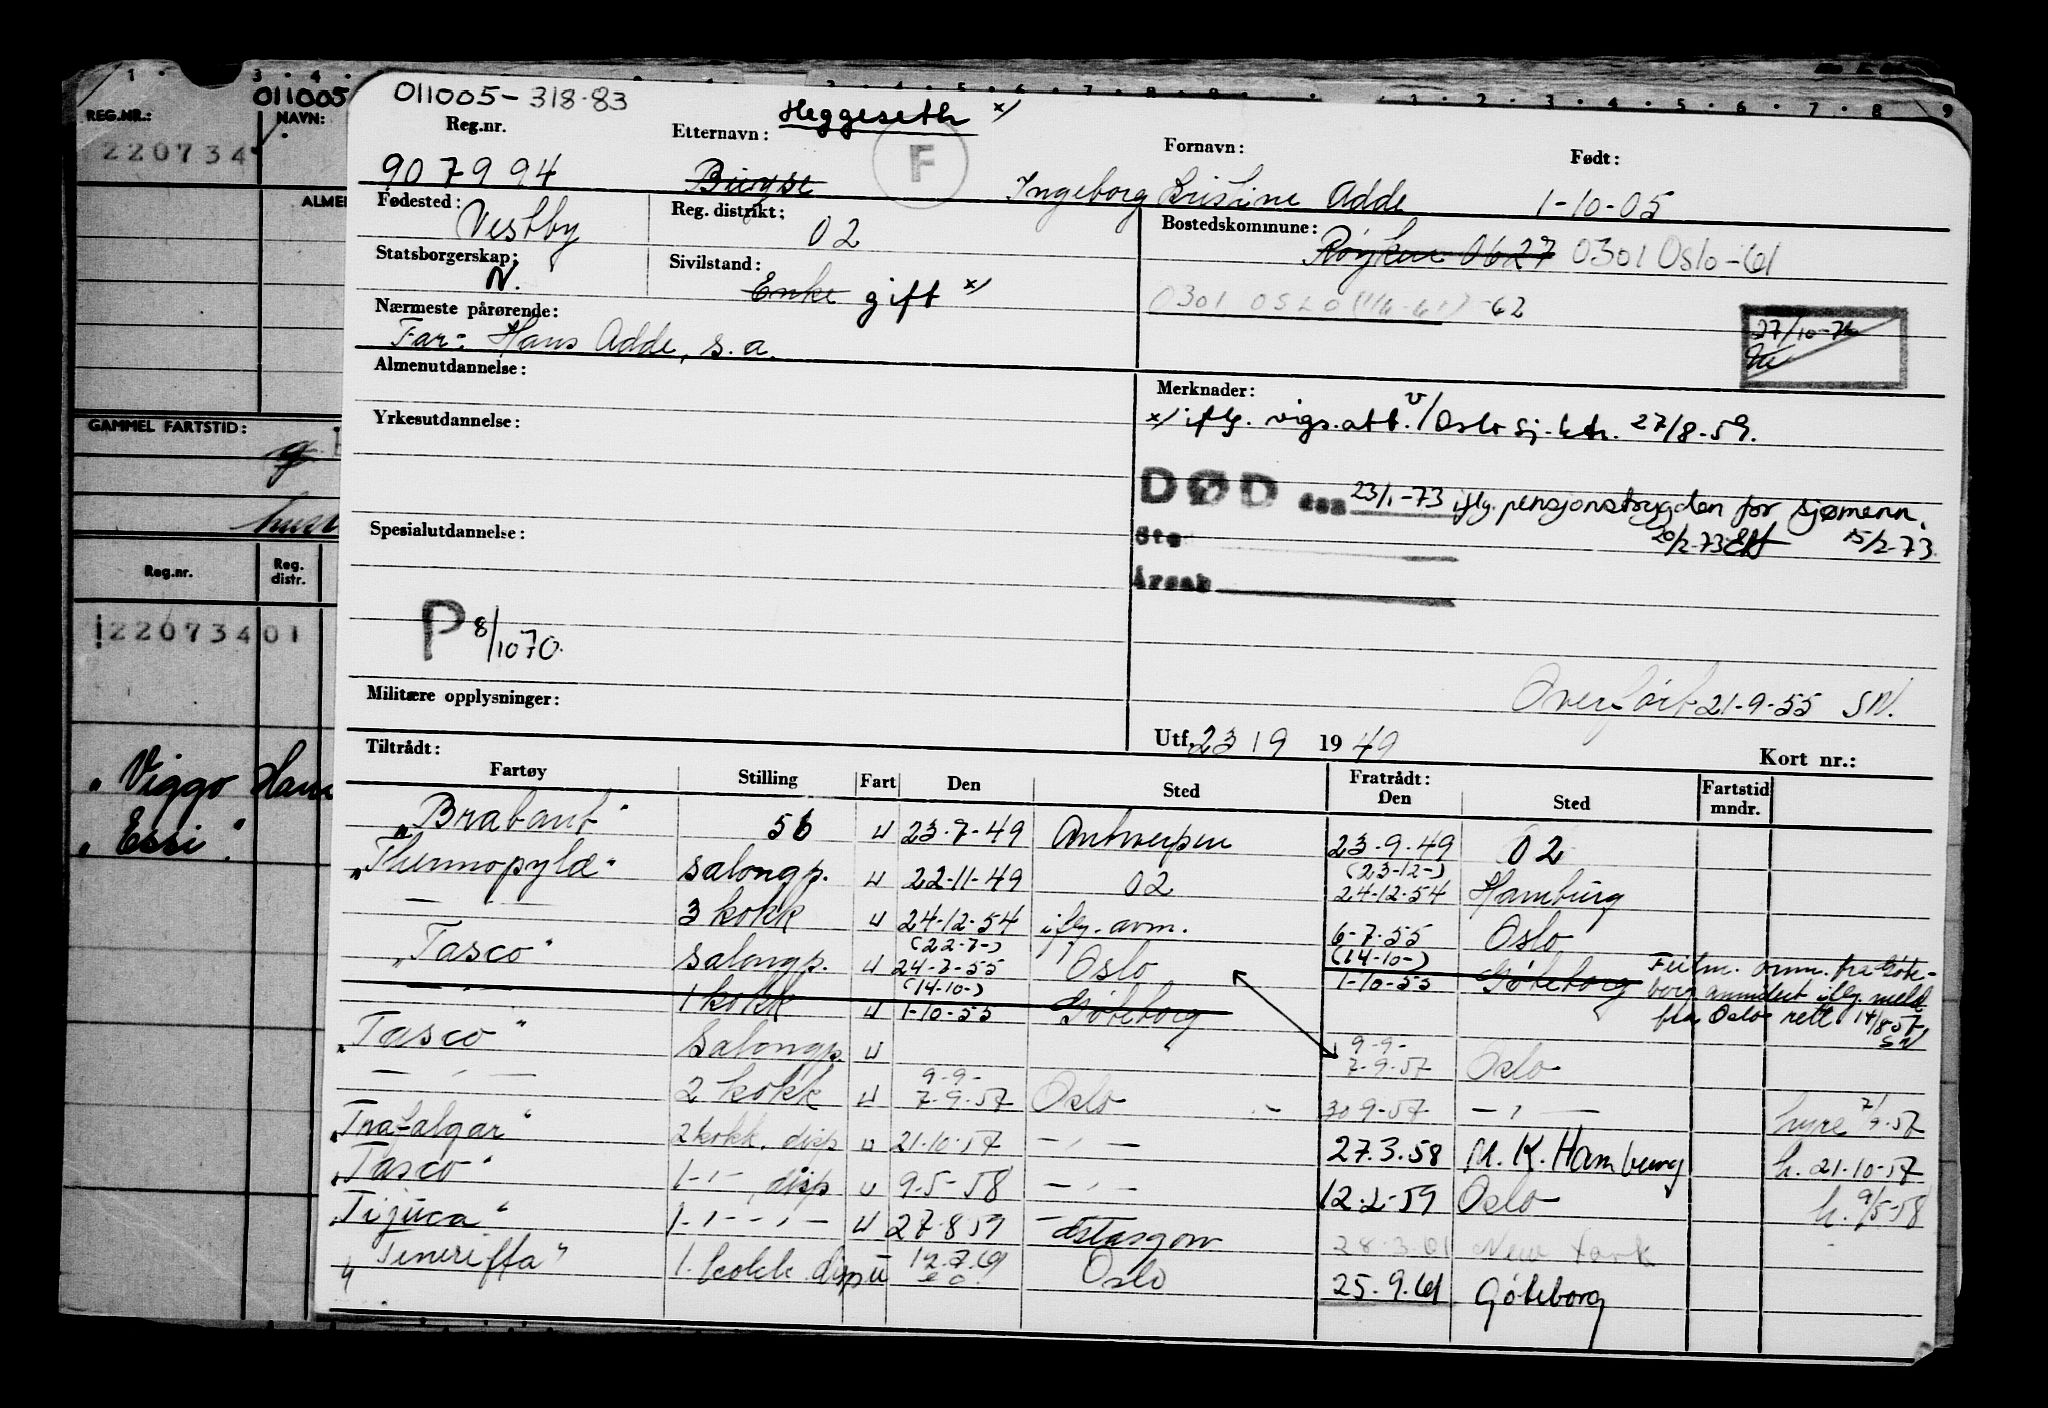 011005
REG.NR.: NAVN:
220734
ALMEN
GAMMEL FARTSTID:
Reg.nr. Reg. distr.
22073401
" Viggo Hans
" Essi ".
011005-318.83
Reg.nr. Etternavn: Heggeseth x/ Fornavn: Født:
907994 Buyse F Ingeborg Kristine Adde 1-10-05
Fødested: Vestby Reg. distrikt: 02 Bostedskommune: Røyken 0627 0301 Oslo-61
Statsborgerskap: N. Sivilstand: Enke gift x/
0301 OSLO (1/6-61) -62
Nærmeste pårørende:
Far: Hans Adde, s.a.
27/10-72
Almenutdannelse:
Merknader:
x/ iflg. vigs.att. v/ Oslo sj.ktr. 27/8-59.
Yrkesutdannelse:
DØD den 23/1-73 iflg. pensjonstrygden for sjømenn.
20/2-73 15/2-73
Sted
Årsak
Spesialutdannelse:
P 8/1070.
Overført 21-9-55 SN.
Militære opplysninger:
Utf. 23 19 1949 Kort nr.:
Tiltrådt: Fratrådt:
Fartøy Stilling Fart Den Sted Den Sted Fartstid mndr.
"Brabant" 56 u 23-7-49 Antwerpen 23-9-49 02
"Thermopylæ" salongp. u 22-11-49 02 (23-12-) 24-12-54 Hamburg
— " — 3 kokk u 24-12-54 iflg. avm. 6-7-55 Oslo
"Tasco" salongp. u (22-7-) 24-7-55 Oslo (14-10-) 1-10-55 Göteborg
— " — 1 kokk u (14-10-) 1-10-55 Göteborg
Feilm. avm. fra Göte-
borg annulert iflg. meld
fra Oslo rett 14/8 57, SN
"Tasco" Salongp. u 9-9- 7-9-57 Oslo
— " — 2 kokk u 9-9- 7-9-57 Oslo 30-9-57 — " — hyre 7/9-57
"Trafalgar" 2 kokk, disp u 21-10-57 — " — 27.3.58 M.K. Hamburg h. 21-10-57
"Tasco" 1 - " - , disp u 9-5-58 — " — 12.2-59 Oslo h. 9/5-58
"Tijuca" 1 - " - - " - u 27-8 59 28-3-61 New York
"Teneriffa" 1. kokk disp u Oslo 25.9.61 Göteborg